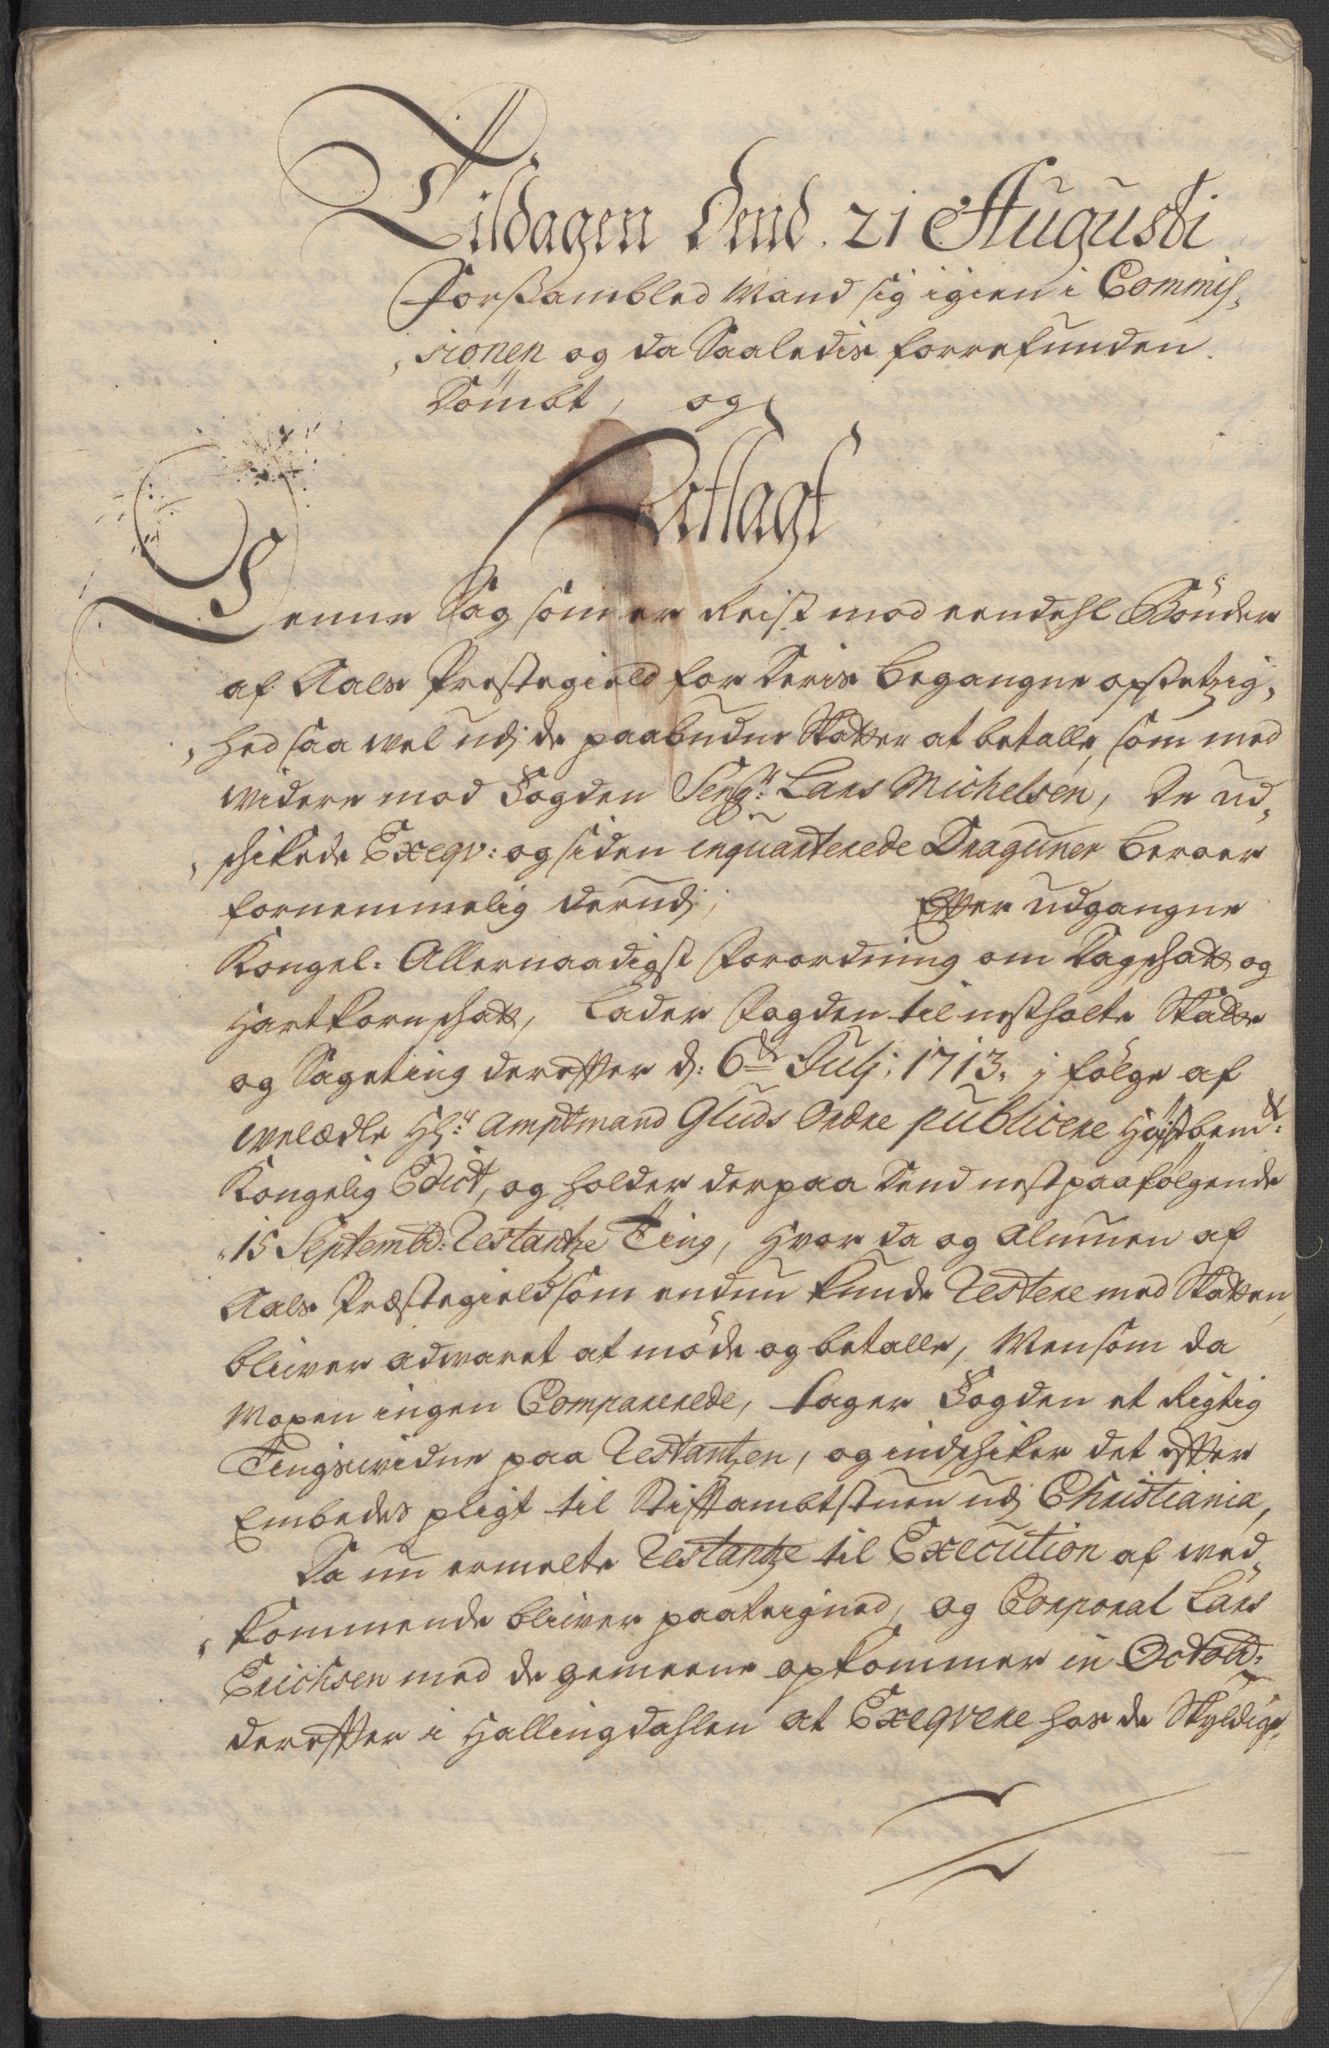 Tildagen Dend. 21 Augusti
Forsambled Mand sig igien i Commis-
sionen og da Saaledis forrefunden.
Dømbt, og
Afsagt
Denne Sag som er Reist mod eendehl Bønder
af Aals Prestegield for Deris begangne opsetzig-
hed saa vel udj de paabudne Skatter at betalle, som med
widere mod Fogden Sengr: Lars Michelsen, De ud-
schikede Exeqv: og siden inquarterede Draguner beroer
fornemmelig derudj; Efter udgangne
Kongel: Allernaadigst forordning om Dagschatt og
Hartkornschatt, Lader fogden til nestholte Skatte
og Sageting derefter d: 6te Julj: 1713. j følge af
welædle Hr: Amptmand Gluds Ordre publicere Høistbemte:
Kongelig Edict, og holder derpaa Dend nestpaafølgende
15 Septembr: Restantze Ting, hvor da og Almuen af
Aals Præstegield som endnu kunde Restere med Skatten,
bliver advaret at møde og betalle, Men som da
Mopen ingen Comparerede, tager Fogden et Rigtig
Tingswidne paa Restantzen, og indschiker det efter
Embedes pligt til Stiftambtstuen udj Christiania,
Da nu ermelte Restantze til Execution af wed-
kommende bliver paateigned, og Corporal Lars
Erichsen med de gemeene opkommer in Octobr:
derefter i Hallingdahlen at Exeqvere hos de Skyldige,